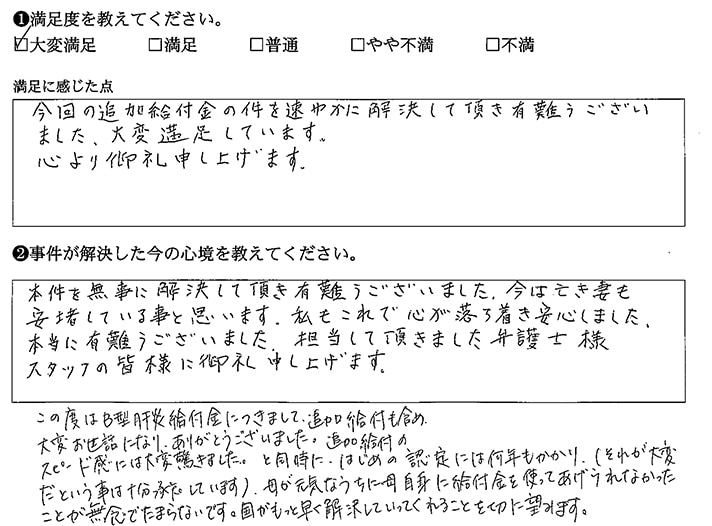 ❶満足度を教えてください。
☑大変満足 □満足 □普通 □やや不満 □不満
満足に感じた点
今回の追加給付金の件を速やかに解決して頂き有難うござい
ました、大変満足しています。
心より御礼申し上げます。
❷事件が解決した今の心境を教えてください。
本件を無事に解決して頂き有難うございました、今は亡き妻も
安堵している事と思います。私もこれで心が落ち着き安心しました、
本当に有難うございました、担当して頂きました弁護士様
スタッフの皆様に御礼申し上げます。
この度はB型肝炎給付金につきまして、追加給付も含め、
大変お世話になり、ありがとうございました。追加給付の
スピード感には大変驚きました。と同時に、はじめの認定には何年もかかり、(それが大変
だという事は十分承知しています)、母が元気なうちに母自身に給付金を使ってあげられなかった
ことが無念でたまらないです。国がもっと早く解決していってくれることを切に望みます。